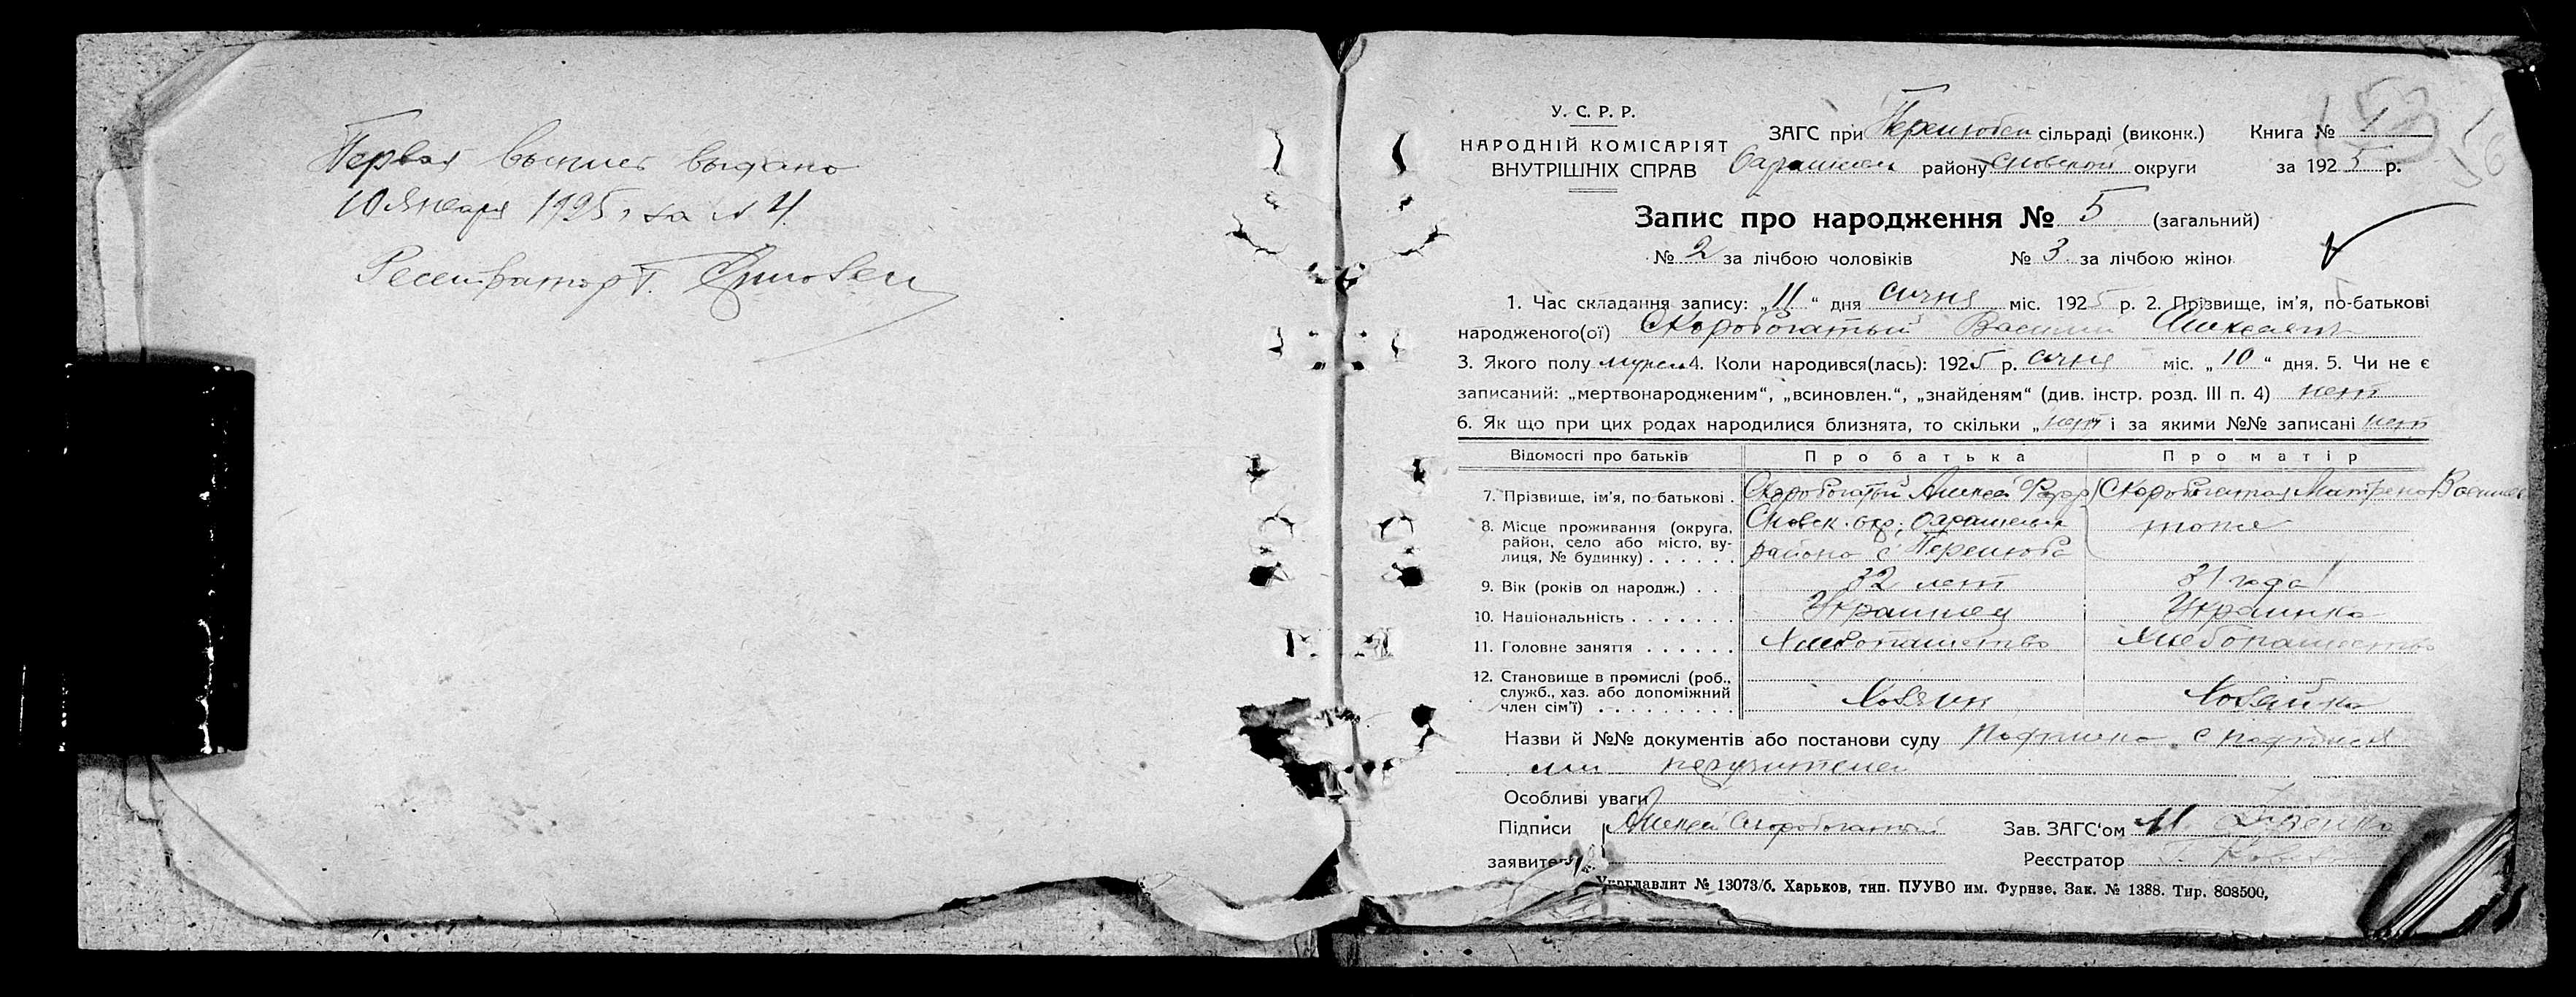 Первая выпись выдана
10 Января 1925 г за № 4
Регистратор Т.
У. С. Р. Р.
НАРОДНІЙ КОМІСАРІЯТ
ВНУТРІШНІХ СПРАВ
ЗАГС при Перелюбск сільраді (виконк.) Книга № 1
району Сновской округи за 1925 р.
Запис про народження № 5 (загальний)
№ 2 за лічбою чоловіків № 3 за лічбою жінок
1. Час складання запису: „11“ дня січня міс. 1925 р. 2. Прізвище, ім'я, по-батькові
народженого(ої) Скоробогатый Василий Алексеев
3. Якого полу мужск 4. Коли народився(лась): 1925 р. січня міс. „10“ дня. 5. Чи не є
записаний: „мертвонародженим“, „всиновлен.“, „знайденям“ (див. інстр. розд. III п. 4) нет
6. Як що при цих родах народилися близнята, то скільки „нет“ і за якими №№ записані нет
Відомості про батьків Про батька Про матір
7. Прізвище, ім'я, по-батькові . Скоробогатый Алексей Скоробогатая Матрена Васильев
8. Місце проживання (округа, район, село або місто, вулиця, № будинку) . . . . . . Сновск. окр., района с Перелюба тоже
9. Вік (років од народж.) . . . 32 лет 31 года
10. Національность . . . . . . . Украинец Украинка
11. Головне заняття . . . . . . Хлебопашество Хлебопашество
12. Становище в промислі (роб., служб., хаз. або допоміжний член сім'ї) . . . . . . . . . Хозяин Хозяйка
Назви й №№ документів або постанови суду с подписа
ми поручителей
Особливі уваги
Підписи Алексей Скоробогатый Зав. ЗАГС'ом М.
заявител Реєстратор
Укрглавлит № 13073/6. Харьков, тип. ПУУВО им. Фрунзе. Зак. № 1388. Тир. 808500,